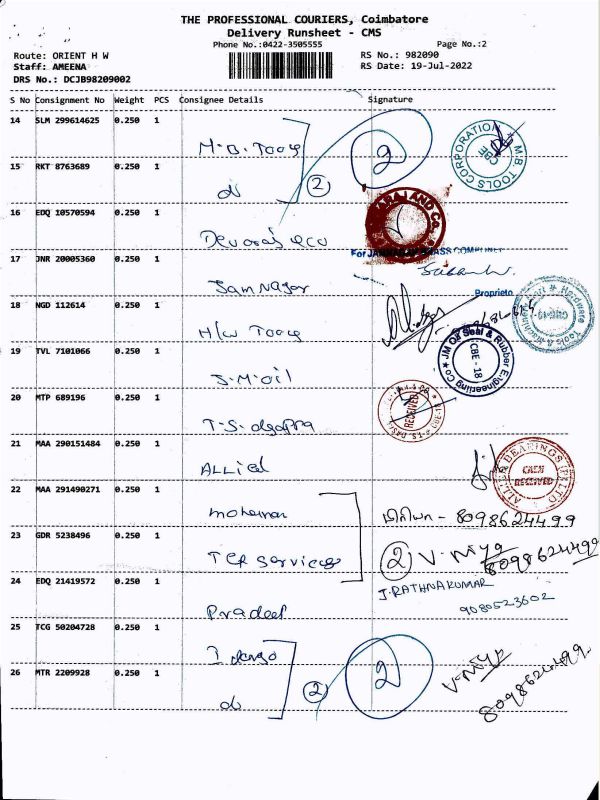 THE PROFESSIONAL COURIERS, Coimbatore
Delivery Runsheet - CMS
Phone No.:0422-3505555 Page No.:2
Route: ORIENT H W RS No.: 982090
Staff: AMEENA RS Date: 19-Jul-2022
DRS No.: DCJB98209002
S No Consignment No Weight PCS Consignee Details Signature
14 SLM 299614625 0.250 1
M.B. Tools 2
M.B. TOOLS CORPORATION CBE
15 RKT 8763689 0.250 1
do 2
16 EDQ 10570594 0.250 1
AND Co.
Devaraj &co
17 JNR 20005360 0.250 1
For
Jam Nagar
Proprieto
18 NGD 112614 0.250 1
H/W Tools
Hardware Tools & Machinery Mart
19 TVL 7101066 0.250 1
JM Oil Seal & Rubber Engineering Co CBE - 18
J.M.oil
20 MTP 689196 0.250 1
RECEIVED
T.S.
21 MAA 290151484 0.250 1
ALLIED BEARINGS (P) LTD RECEIVED
ALLIED
22 MAA 291490271 0.250 1
8098624499
23 GDR 5238496 0.250 1
TCP Services 2 8098624499
24 EDQ 21419572 0.250 1
J. RATHNAKUMAR
9080523602
Pradeep
25 TCG 50204728 0.250 1
26 MTR 2209928 0.250 1
do 2 2
8098624499